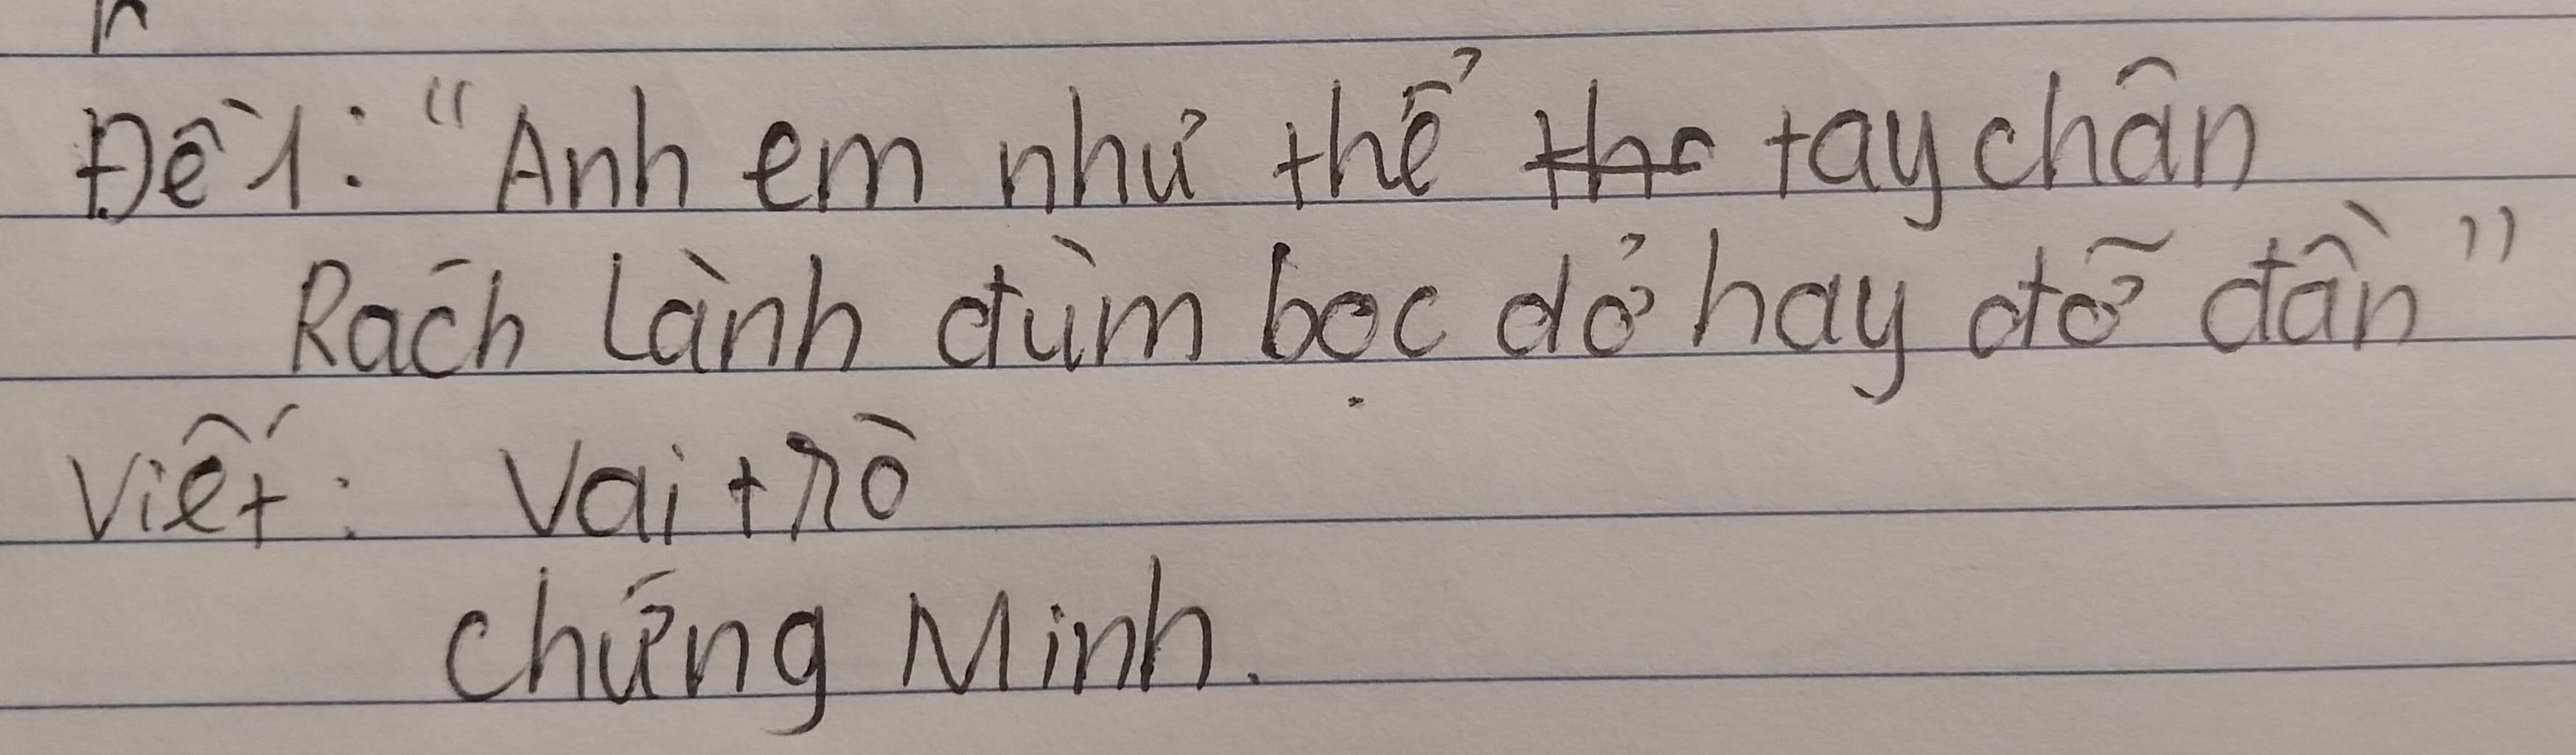 Đề 1: "Anh em như thể tay chân
Rách lành đùm bọc dở hay đỡ đần"
Viết: Vai trò
Chứng Minh.